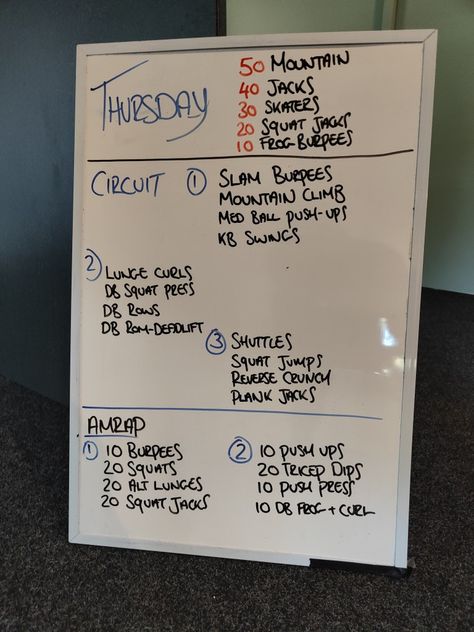 THURSDAY
50 MOUNTAIN
40 JACKS
30 SKATERS
20 SQUAT JACKS
10 FROG-BURPEES
CIRCUIT
1 SLAM BURPEES
MOUNTAIN CLIMB
MED BALL PUSH-UPS
KB SWINGS
2 LUNGE CURLS
DB SQUAT PRESS
DB ROWS
DB ROM-DEADLIFT
3 SHUTTLES
SQUAT JUMPS
REVERSE CRUNCH
PLANK JACKS
AMRAP
1 10 BURPEES
20 SQUATS
20 ALT LUNGES
20 SQUAT JACKS
2 10 PUSH UPS
20 TRICED DIPS
10 PUSH PRESS
10 DB FROG + CURL